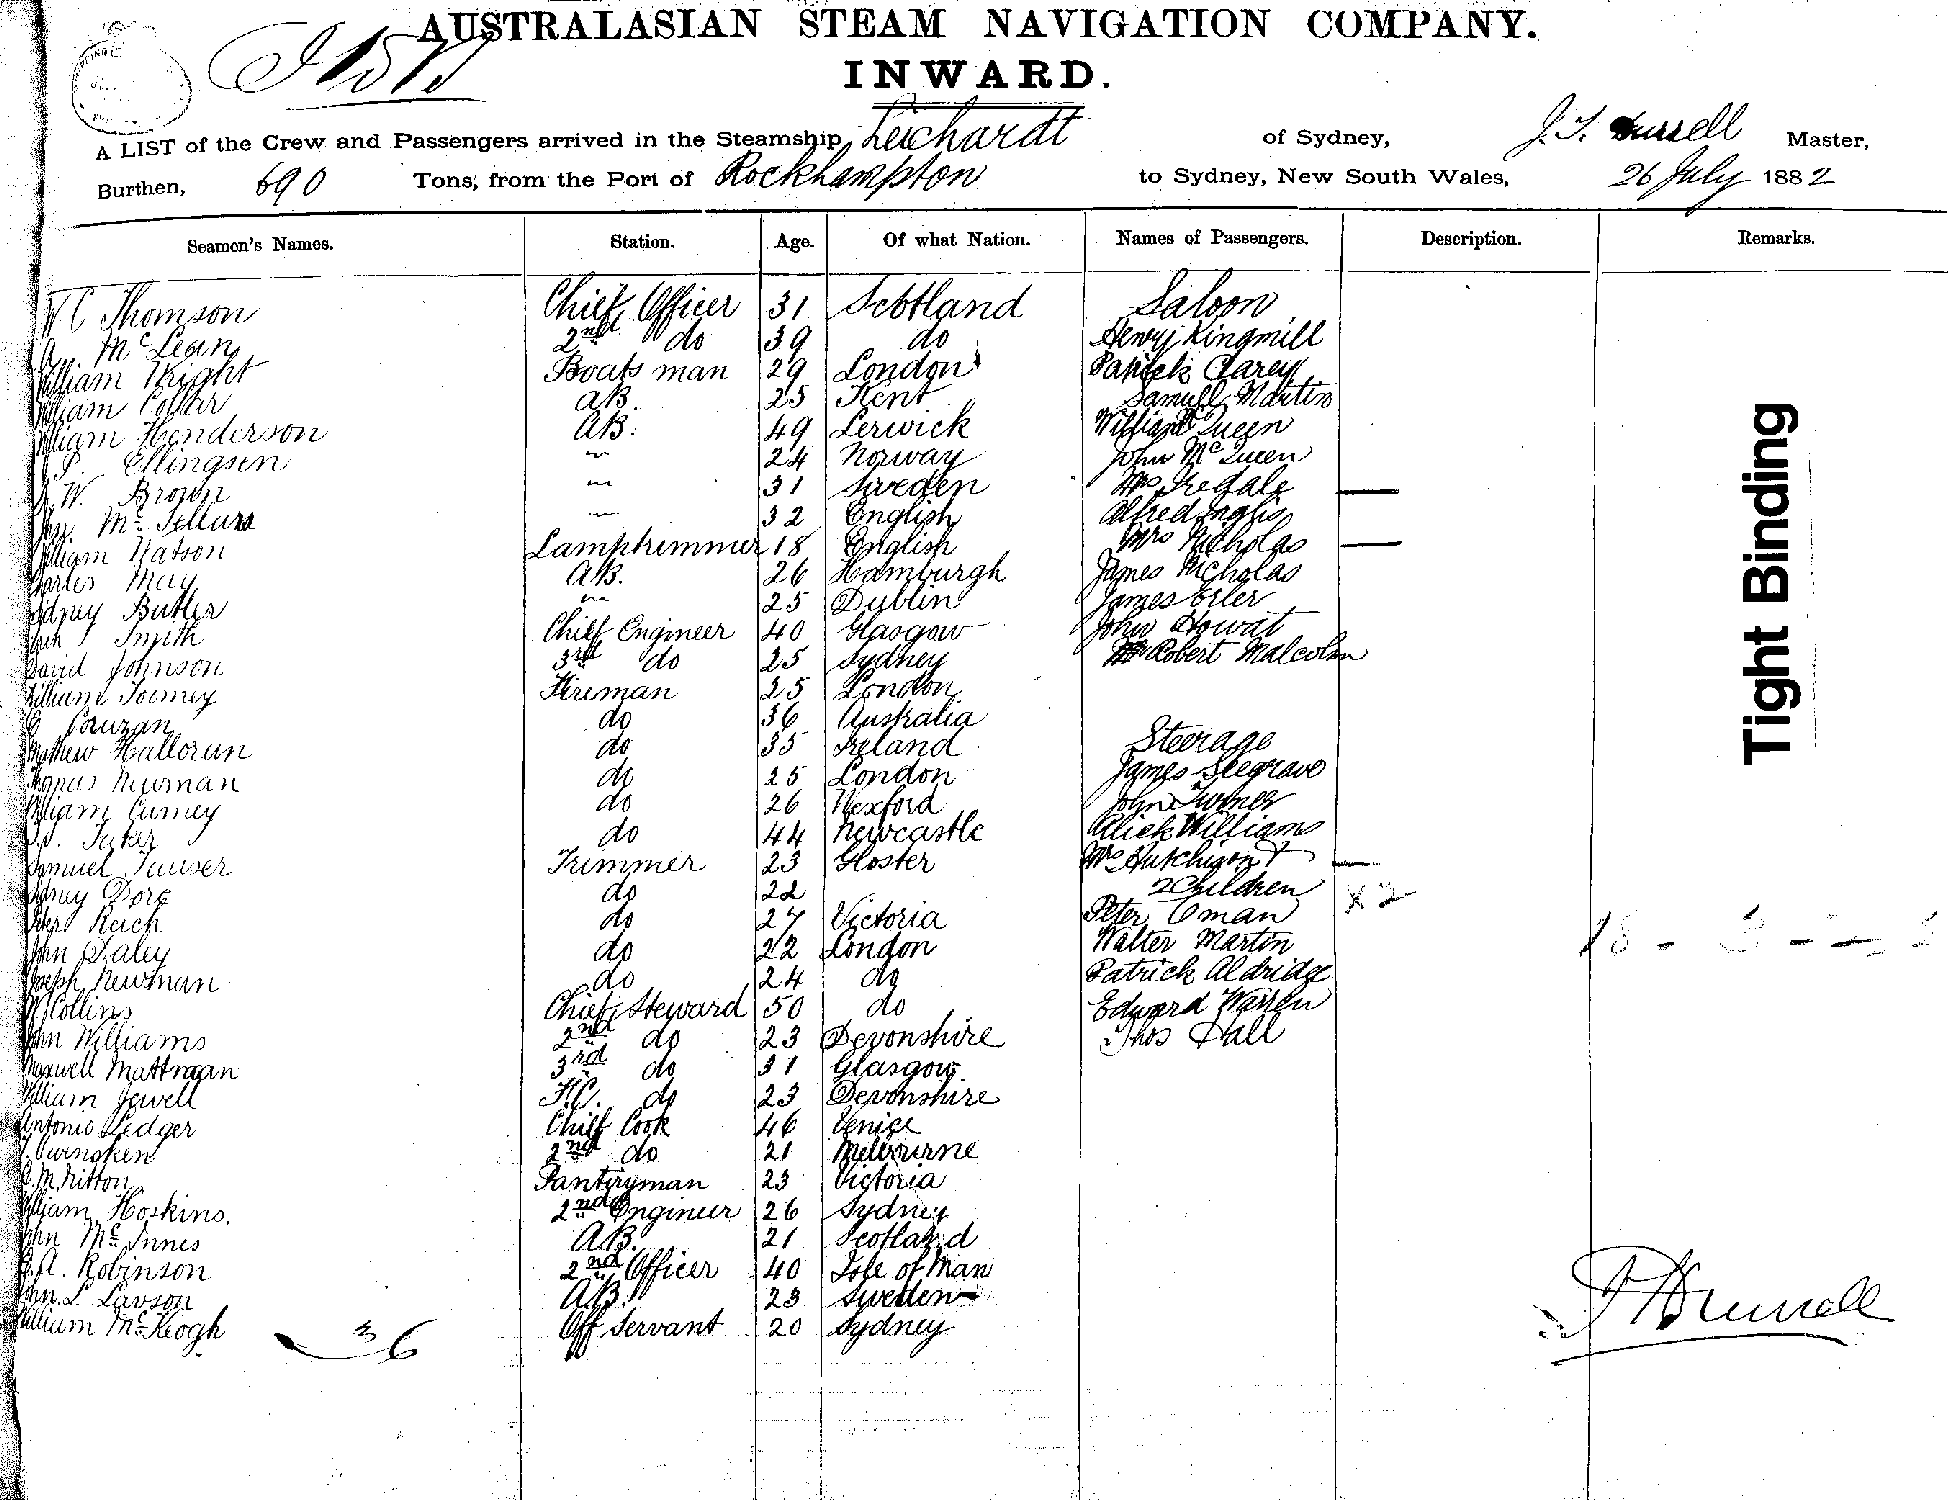 AUSTRALASIAN STEAM NAVIGATION COMPANY.
INWARD.
A LIST of the Crew and Passengers arrived in the Steamship Leichardt of Sydney, J. T. Master,
Burthen, 690 Tons, from the Port of Rockhampton to Sydney, New South Wales, 26 July 1882
Seamen's Names. Station. Age. Of what Nation. Names of Passengers. Description. Remarks.
W C Thomson Chief Officer 31 Scotland Saloon
Mc Lean 2nd do 39 do Henry Kingmill
William Wright Boatsman 29 London Patrick Carey
William Collar AB. 25 Kent Samuel Martin
William Henderson AB. 49 Lerwick William Queen
P. Ellingsen " 24 Norway John McQueen
W. Brown " 31 Sweden Mrs Iredale —
Mc " 32 English Alfred Inglis
William Watson Lamptrimmer 18 English Mrs Nicholas —
Charles May AB. 26 Hamburgh James Nicholas
Sydney Butler " 25 Dublin James Erler
Smith Chief Engineer 40 Glasgow John Howat
David Johnson 3rd do 25 Sydney Robert Malcolm
William Toomey Fireman 25 London
do 36 Australia
Mathew Halloran do 35 Ireland Steerage
Thomas Newman do 25 London James Seegrave
William Curney do 26 Wexford John Turner
Tuker do 44 Newcastle Alick Williams
Samuel Trimmer 23 Gloster Mrs Hutchison + —
Sidney Dore do 22 2 Children x2
Reich do 27 Victoria Peter Oman
John Daley do 22 London Walter Martin
Joseph Newman do 24 do Patrick Aldridge
Collins Chief Steward 50 do Edward Warren
John Williams 2nd do 23 Devonshire Thos Hall
Maxwell Mattman 3rd do 31 Glasgow
William Jewell F.C. do 23 Devonshire
Antonio Ledger Chief Cook 46 Venice
2nd do 21 Melbourne
Pantryman 23 Victoria
William Hoskins. 2nd Engineer 26 Sydney
John McInnes AB. 21 Scotland
A. Robinson 2nd Officer 40 Isle of Man
John L Lavson AB. 23 Sweden
William McKeogh Off Servant 20 Sydney
36
Tight Binding